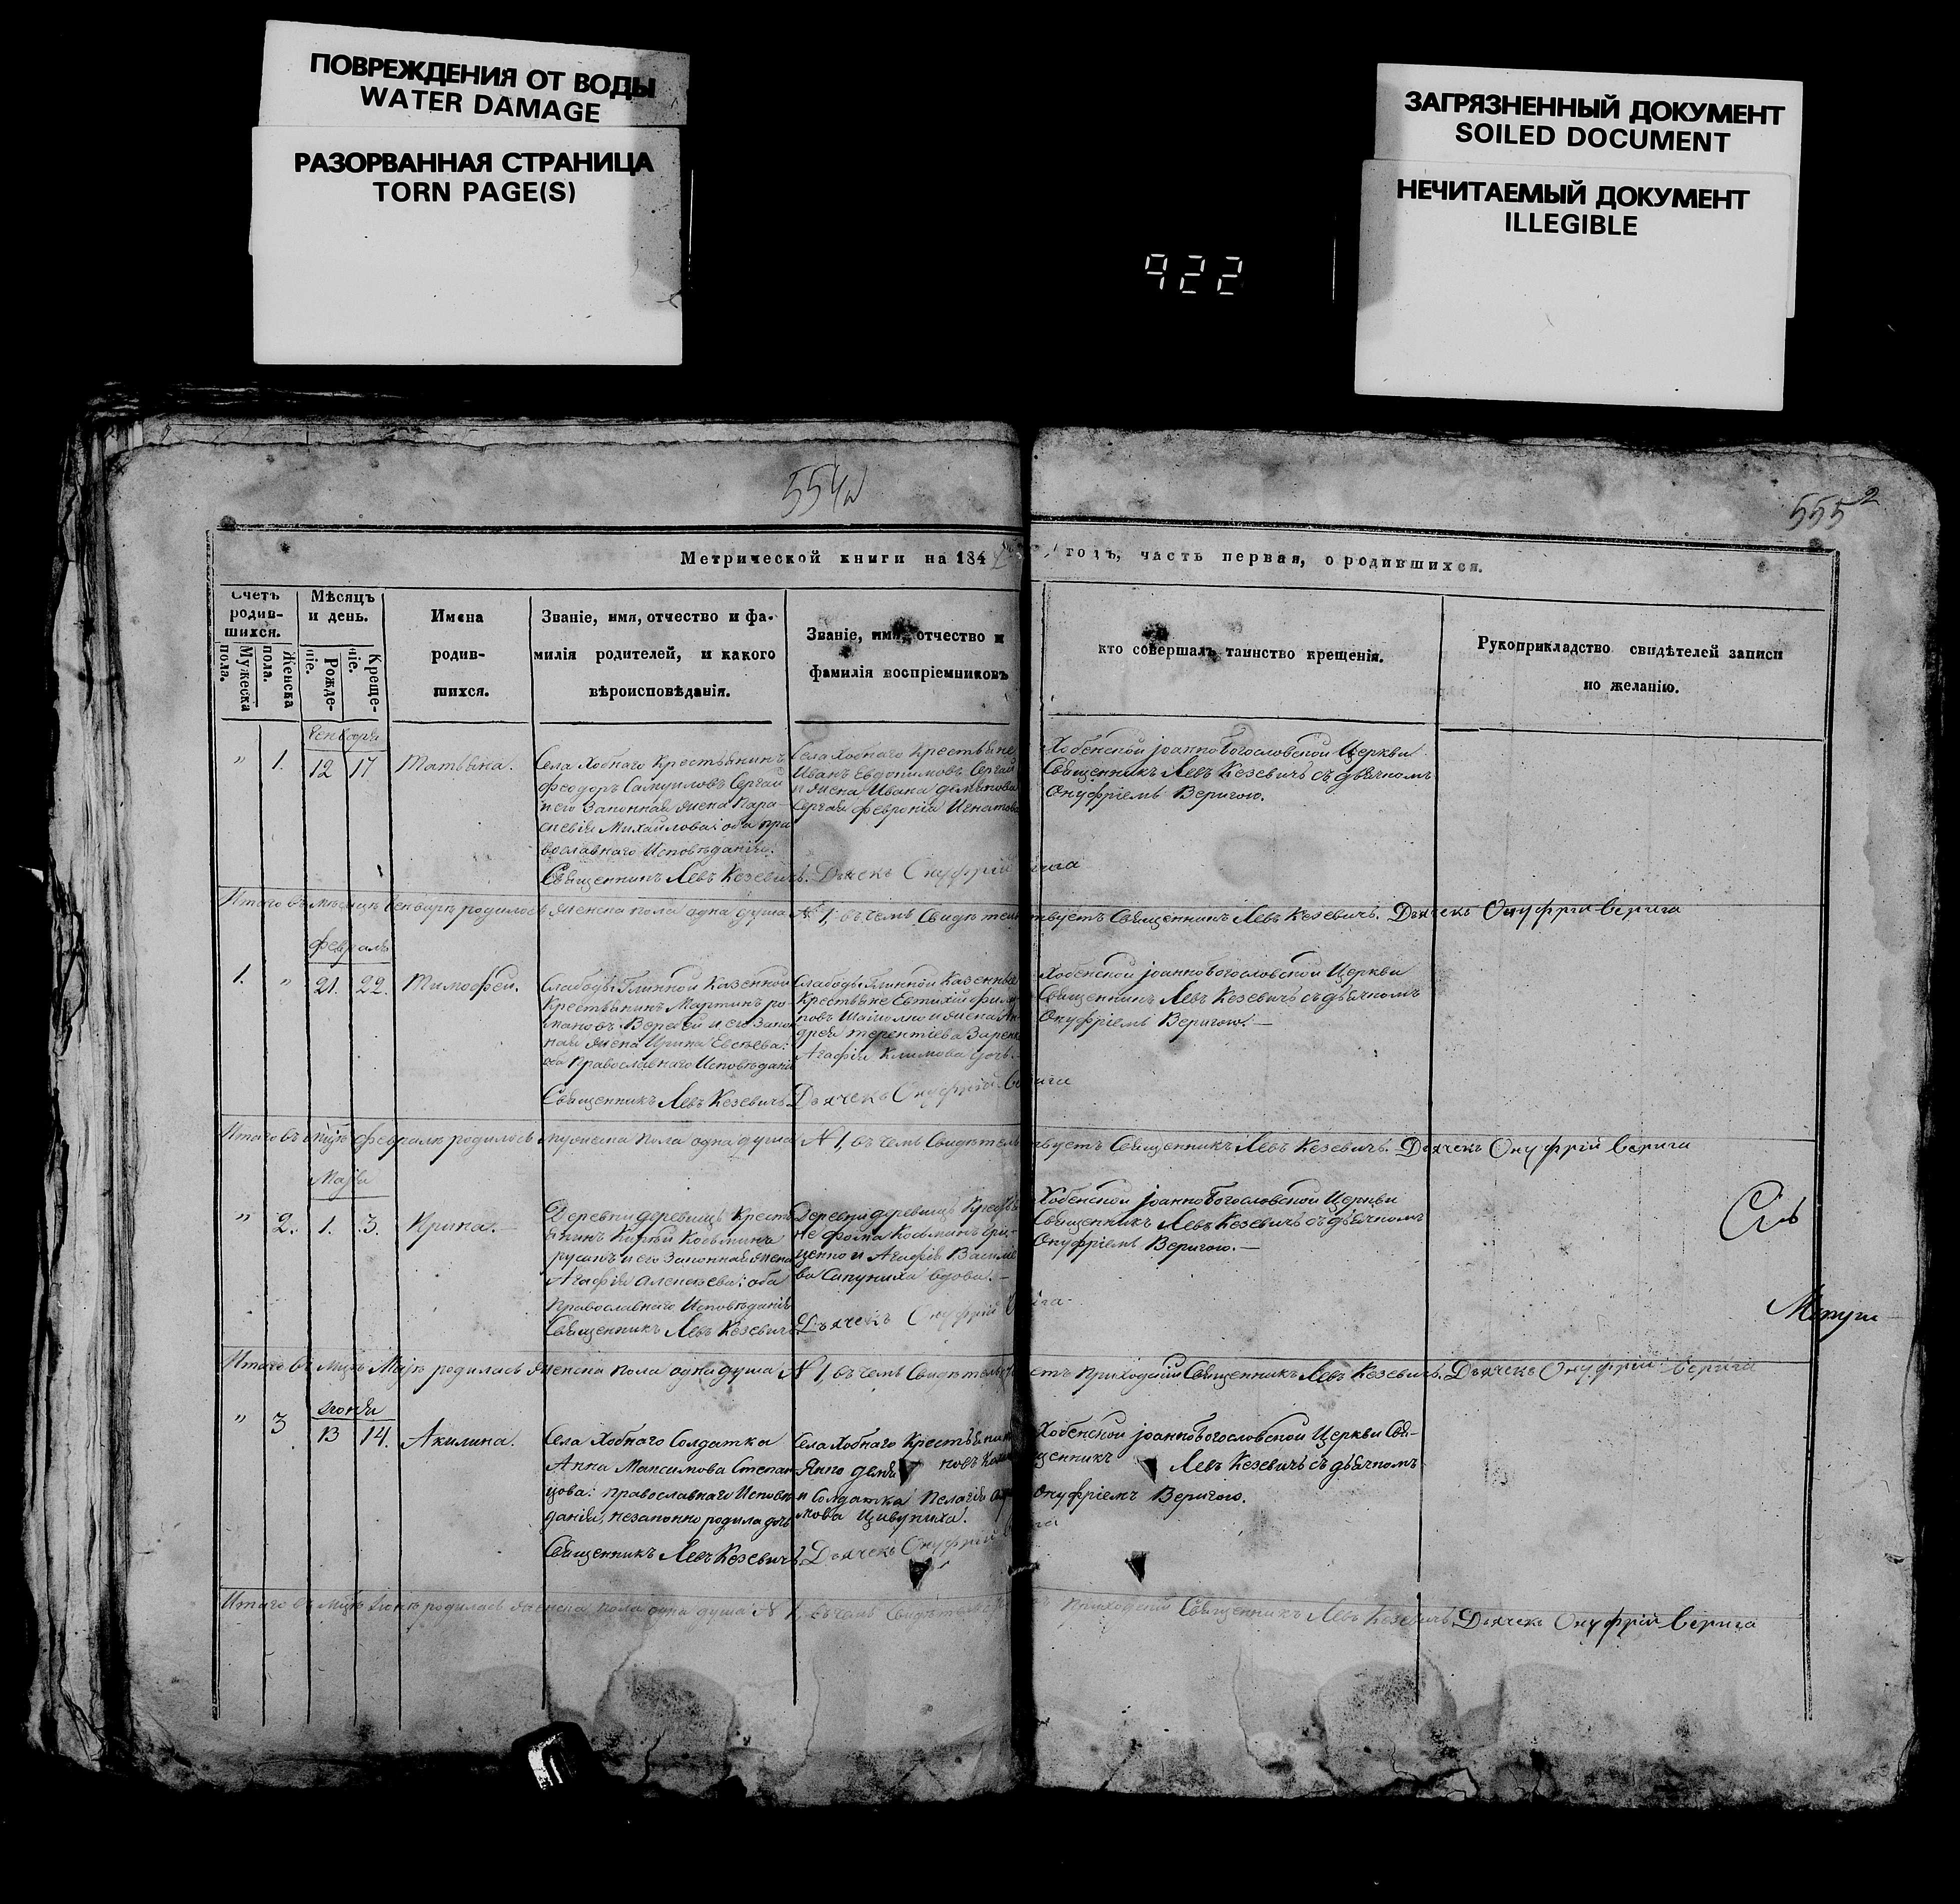 ПОВРЕЖДЕНИЯ ОТ ВОДЫ
WATER DAMAGE
РАЗОРВАННАЯ СТРАНИЦА
TORN PAGE(S)
ЗАГРЯЗНЕННЫЙ ДОКУМЕНТ
SOILED DOCUMENT
НЕЧИТАЕМЫЙ ДОКУМЕНТ
ILLEGIBLE
922
555
2
Метрической книги на 184
годъ, часть первая, о родившихся.
Счетъ родив-шихся.
Мужеска пола.
Женска пола.
Мѣсяцъ и день.
Рожде-ніе.
Креще-ніе.
Имена
родив-
шихся.
Званіе, имя, отчество и фа-
милія родителей, и какого
вѣроисповѣданія.
Званіе, имя, отчество и
фамилія воспріемниковъ
кто совершалъ таинство крещенія.
Рукоприкладство свидѣтелей записи
по желанію.
" 1. 12 17
Села Хобнаго Крестьянинъ
Феодоръ Самуиловъ Сергай
и его Законная жена Пара-
скевія Михайлова: оба пра-
вославнаго Исповѣданія.
Священникъ Левъ Кезевичъ.
Села Хобнаго Крестьяне
Иванъ Евдокимовъ Сергай
и жена Ивана
Сергая Февронія Игнатова
Дьячекъ Онуфрій Верига
Хобенской Іоанно Богословской Церкви
Священникъ Левъ Кезевичъ съ дьячкомъ
Онуфріемъ Веригою.
родилось женска пола одна душа № 1, въ чемъ Свидѣтельствуетъ Священникъ Левъ Кезевичъ. Дьячекъ Онуфрій Верига
Февраля
1. " 21. 22. Тимофей.
Слабоды Глинной Казенной
Крестьянинъ Мартинъ Ро-
мановъ и его Закон-
ная жена Ирина Евсѣева:
оба Православнаго Исповѣданія
Священникъ Левъ Кезевичъ.
Слабоды Глинной Казенные
Крестьяне Евтихій
и жена Ан-
дрея Терентіева
Агафія Климова дочь.
Дьячекъ Онуфрій Верига
Хобенской Іоанно Богословской Церкви
Священникъ Левъ Кезевичъ съ дьячкомъ
Онуфріемъ Веригою.—
Итого въ мцѣ Февралѣ родилось мужеска пола одна душа № 1, въ чемъ Свидѣтельствуетъ Священникъ Левъ Кезевичъ. Дьячекъ Онуфрій Верига
" 2. 1. 3. Ирина.
Деревни Крестья-
нинъ Козьминъ
и его Законная жена
Агафія Алексѣева: оба
Православнаго Исповѣданія
Священникъ Левъ Кезевичъ.
Деревни Крестья-
не Фома Козьминъ Гри-
ценко и Агафія Василіе-
ва вдова.—
Дьячекъ Онуфрій Верига
Хобенской Іоанно Богословской Церкви
Священникъ Левъ Кезевичъ съ дьячкомъ
Онуфріемъ Веригою.—
родилась женска пола одна душа № 1, въ чемъ Свидѣтельствуетъ приходскій Священникъ Левъ Кезевичъ. Дьячекъ Онуфрій Верига
Іюня
" 3 13 14. Акилина.
Села Хобнаго Солдатка
Анна Максимова Степан-
цова: православнаго Исповѣ-
данія, незаконно родила дочь
Священникъ Левъ Кезевичъ.
Села Хобнаго Крестьянинъ
и Солдатка Пелагія
Дьячекъ Онуфрій Верига
Хобенской Іоанно Богословской Церкви Свя-
щенникъ Левъ Кезевичъ съ дьячкомъ
Онуфріемъ Веригою.
Итого въ мцѣ Іюнѣ родилась женска пола одна душа № 1, въ чемъ Свидѣтельствуетъ приходскій Священникъ Левъ Кезевичъ. Дьячекъ Онуфрій Верига